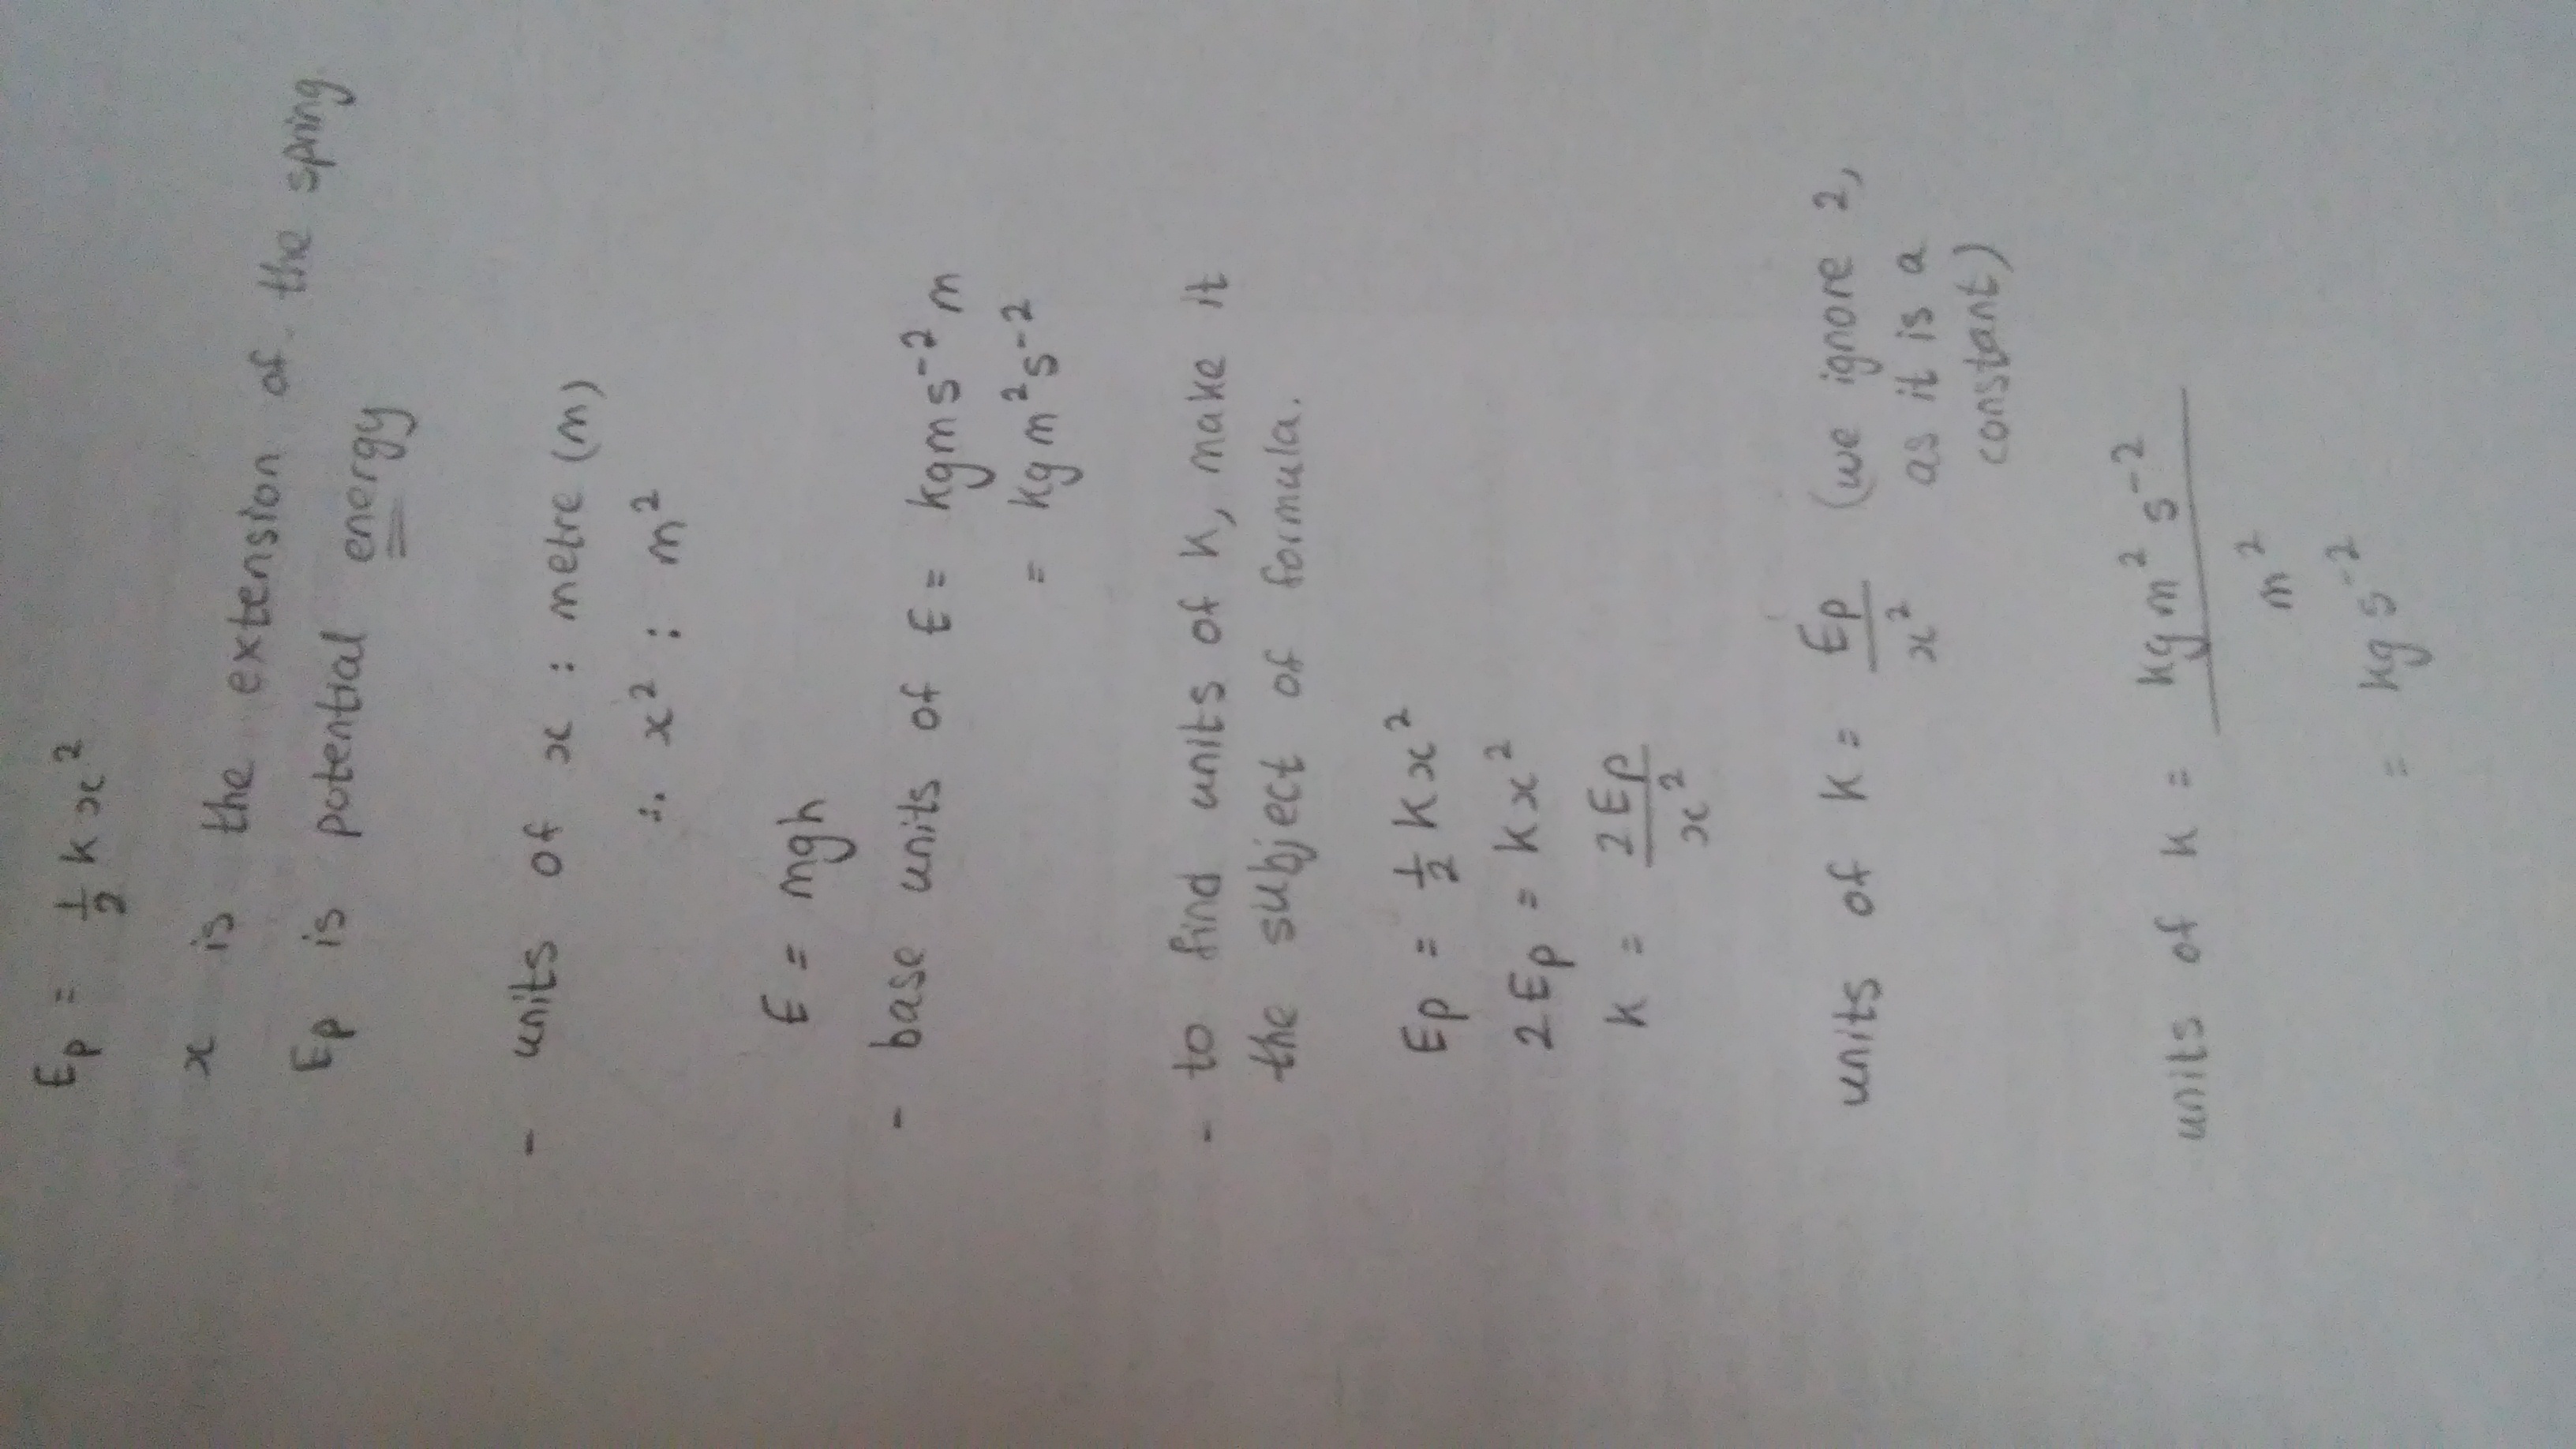 Ep = 1/2 k x²
x is the extension of the spring
Ep is potential energy
- units of x : metre (m)
∴ x² : m²
E = mgh
- base units of E = kgms⁻² m
= kgm²s⁻²
- to find units of k, make it
the subject of formula.
Ep = 1/2 k x²
2Ep = k x²
k = 2Ep / x²
units of k = Ep / x² (we ignore 2,
as it is a
constant)
units of k = kgm²s⁻² / m²
= kgs⁻²